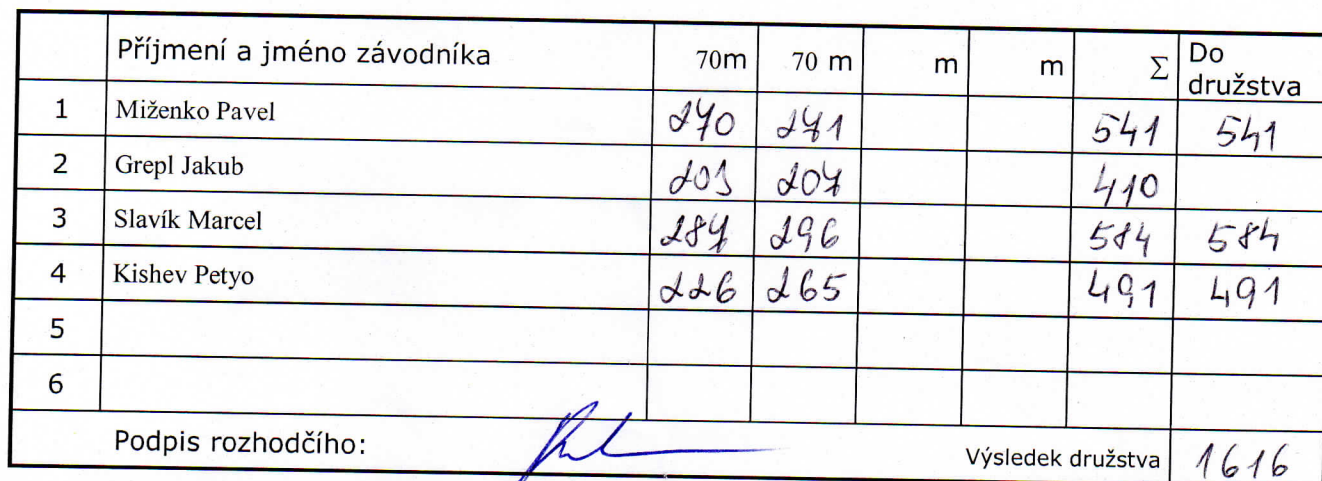 Příjmení a jméno závodníka 70m 70 m m m Σ Do
družstva
1 Miženko Pavel 270 271 541 541
2 Grepl Jakub 203 207 410
3 Slavík Marcel 287 296 584 584
4 Kishev Petyo 226 265 491 491
5
6
Podpis rozhodčího: Výsledek družstva 1616